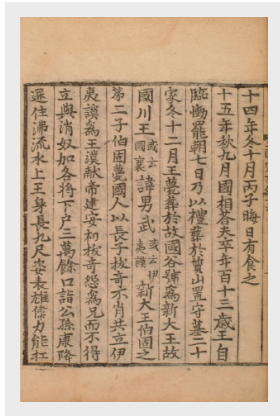 十四年冬十月丙子晦日有食之
十五年秋九月國相荅夫卒年百十三歲王自
臨慟罷朝七日乃以禮葬於質山置守墓二十
家冬十二月王薨葬於故國谷號爲新大王故
國川王或云國襄諱男武或云伊夷謨新大王伯固之
第二子伯固薨國人以長子拔奇不肖共立伊
夷謨爲王漢獻帝建安初拔奇怨爲兄而不得
立與消奴加各將下戶三萬餘口詣公孫康降
還住沸流水上王身長九尺姿表雄偉力能扛